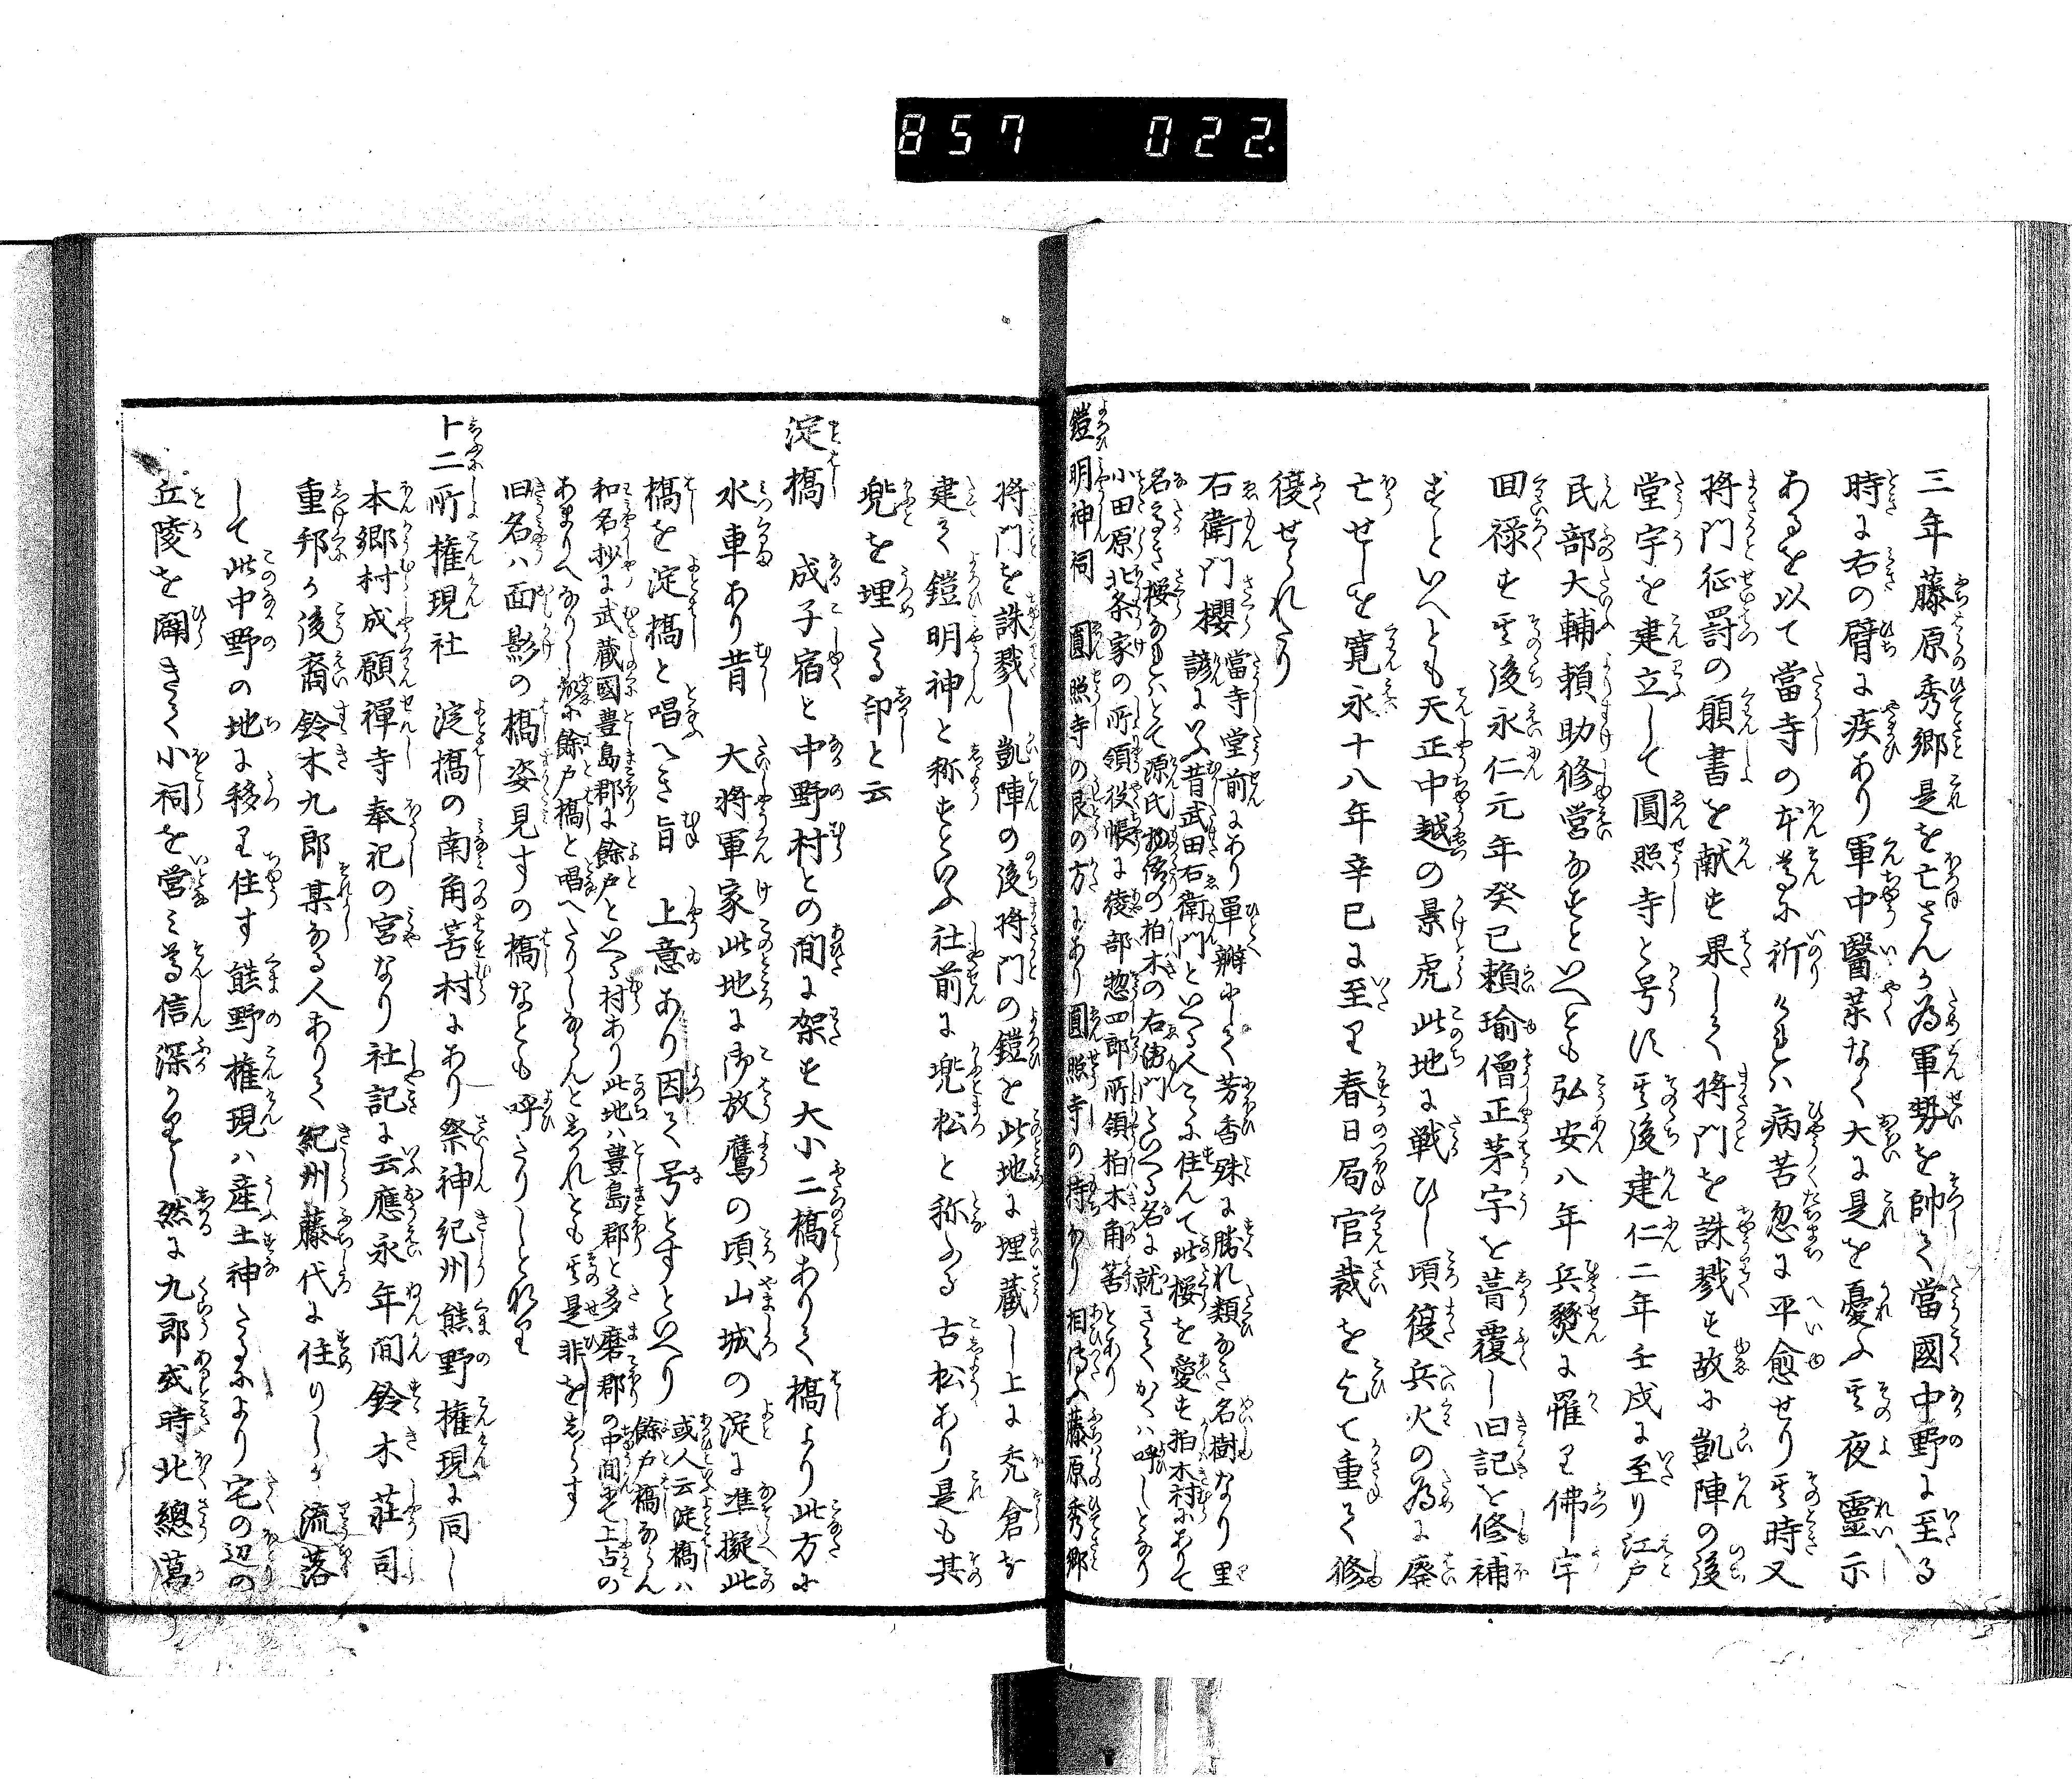 857 022.
三年藤原秀郷是を亡さんか為軍勢を帥て當國中野に至る
時に右の臂に疾あり軍中醫薬なく大に是を憂ふ其夜靈示
あるを以て當寺の本尊に祈けれは病苦忽に平愈せり其時又
将門征罸の願書を献す果して将門を誅戮す故に凱陣の後
堂宇を建立して圓照寺と号す其後建仁二年壬戌に至り江戸
民部大輔頼助修営なすといへとも弘安八年兵燹に罹り佛宇
回禄す其後永仁元年癸巳頼瑜僧正茅宇を葺覆し旧記を修補
すといへとも天正中越の景虎此地に戦ひし頃復兵火の為に廢
亡せしを寛永十八年辛巳に至り春日局官裁を乞て重て修
復せられたり
右衛門櫻 當寺堂前にあり單瓣にして芳香殊に勝れ類なき名樹なり里
諺にいふ昔武田右衛門といへる人こゝに住んて此桜を愛す柏木村にありて
名たかき桜なれはとて源氏物語の柏木の右衛門といへる名に就きてかくは呼しとなり
小田原北条家の所領役帳に綾部惣四郎所領柏木角筈とあり
鎧明神祠 圓照寺の艮の方にあり圓照寺の持なり相傳ふ藤原秀郷
将門を誅戮し凱陣の後将門の鎧を此地に埋蔵し上に禿倉を
建て鎧明神と称すといふ社前に兜松と称ふる古松あり是も其
兜を埋たる印と云
淀橋 成子宿と中野村との間に架す大小二橋ありて橋より此方に
水車あり昔 大将軍家此地に御放鷹の頃山城の淀に准擬此
橋を淀橋と唱へき旨 上意あり因て号とすといへり 或人云淀橋は
餘戸橋ならん
和名抄に武蔵國豊島郡に餘戸といへる村あり此地は豊島郡と多磨郡の中間にて上古の
あまりへなりし故に餘戸橋と唱へたりしならんとしかれとも其是非をしらす
旧名は面影の橋姿見すの橋なとも呼たりしとなり
十二所権現社 淀橋の南角筈村にあり祭神紀州熊野権現に同し
本郷村成願禪寺奉祀の宮なり社記に云應永年間鈴木荘司
重邦か後裔鈴木九郎某なる人ありて紀州藤代に住りしか流落
して此中野の地に移り住す熊野権現は産土神たるにより宅の辺の
丘陵を闢きて小祠を営み尊信深かりし然に九郎或時北總葛